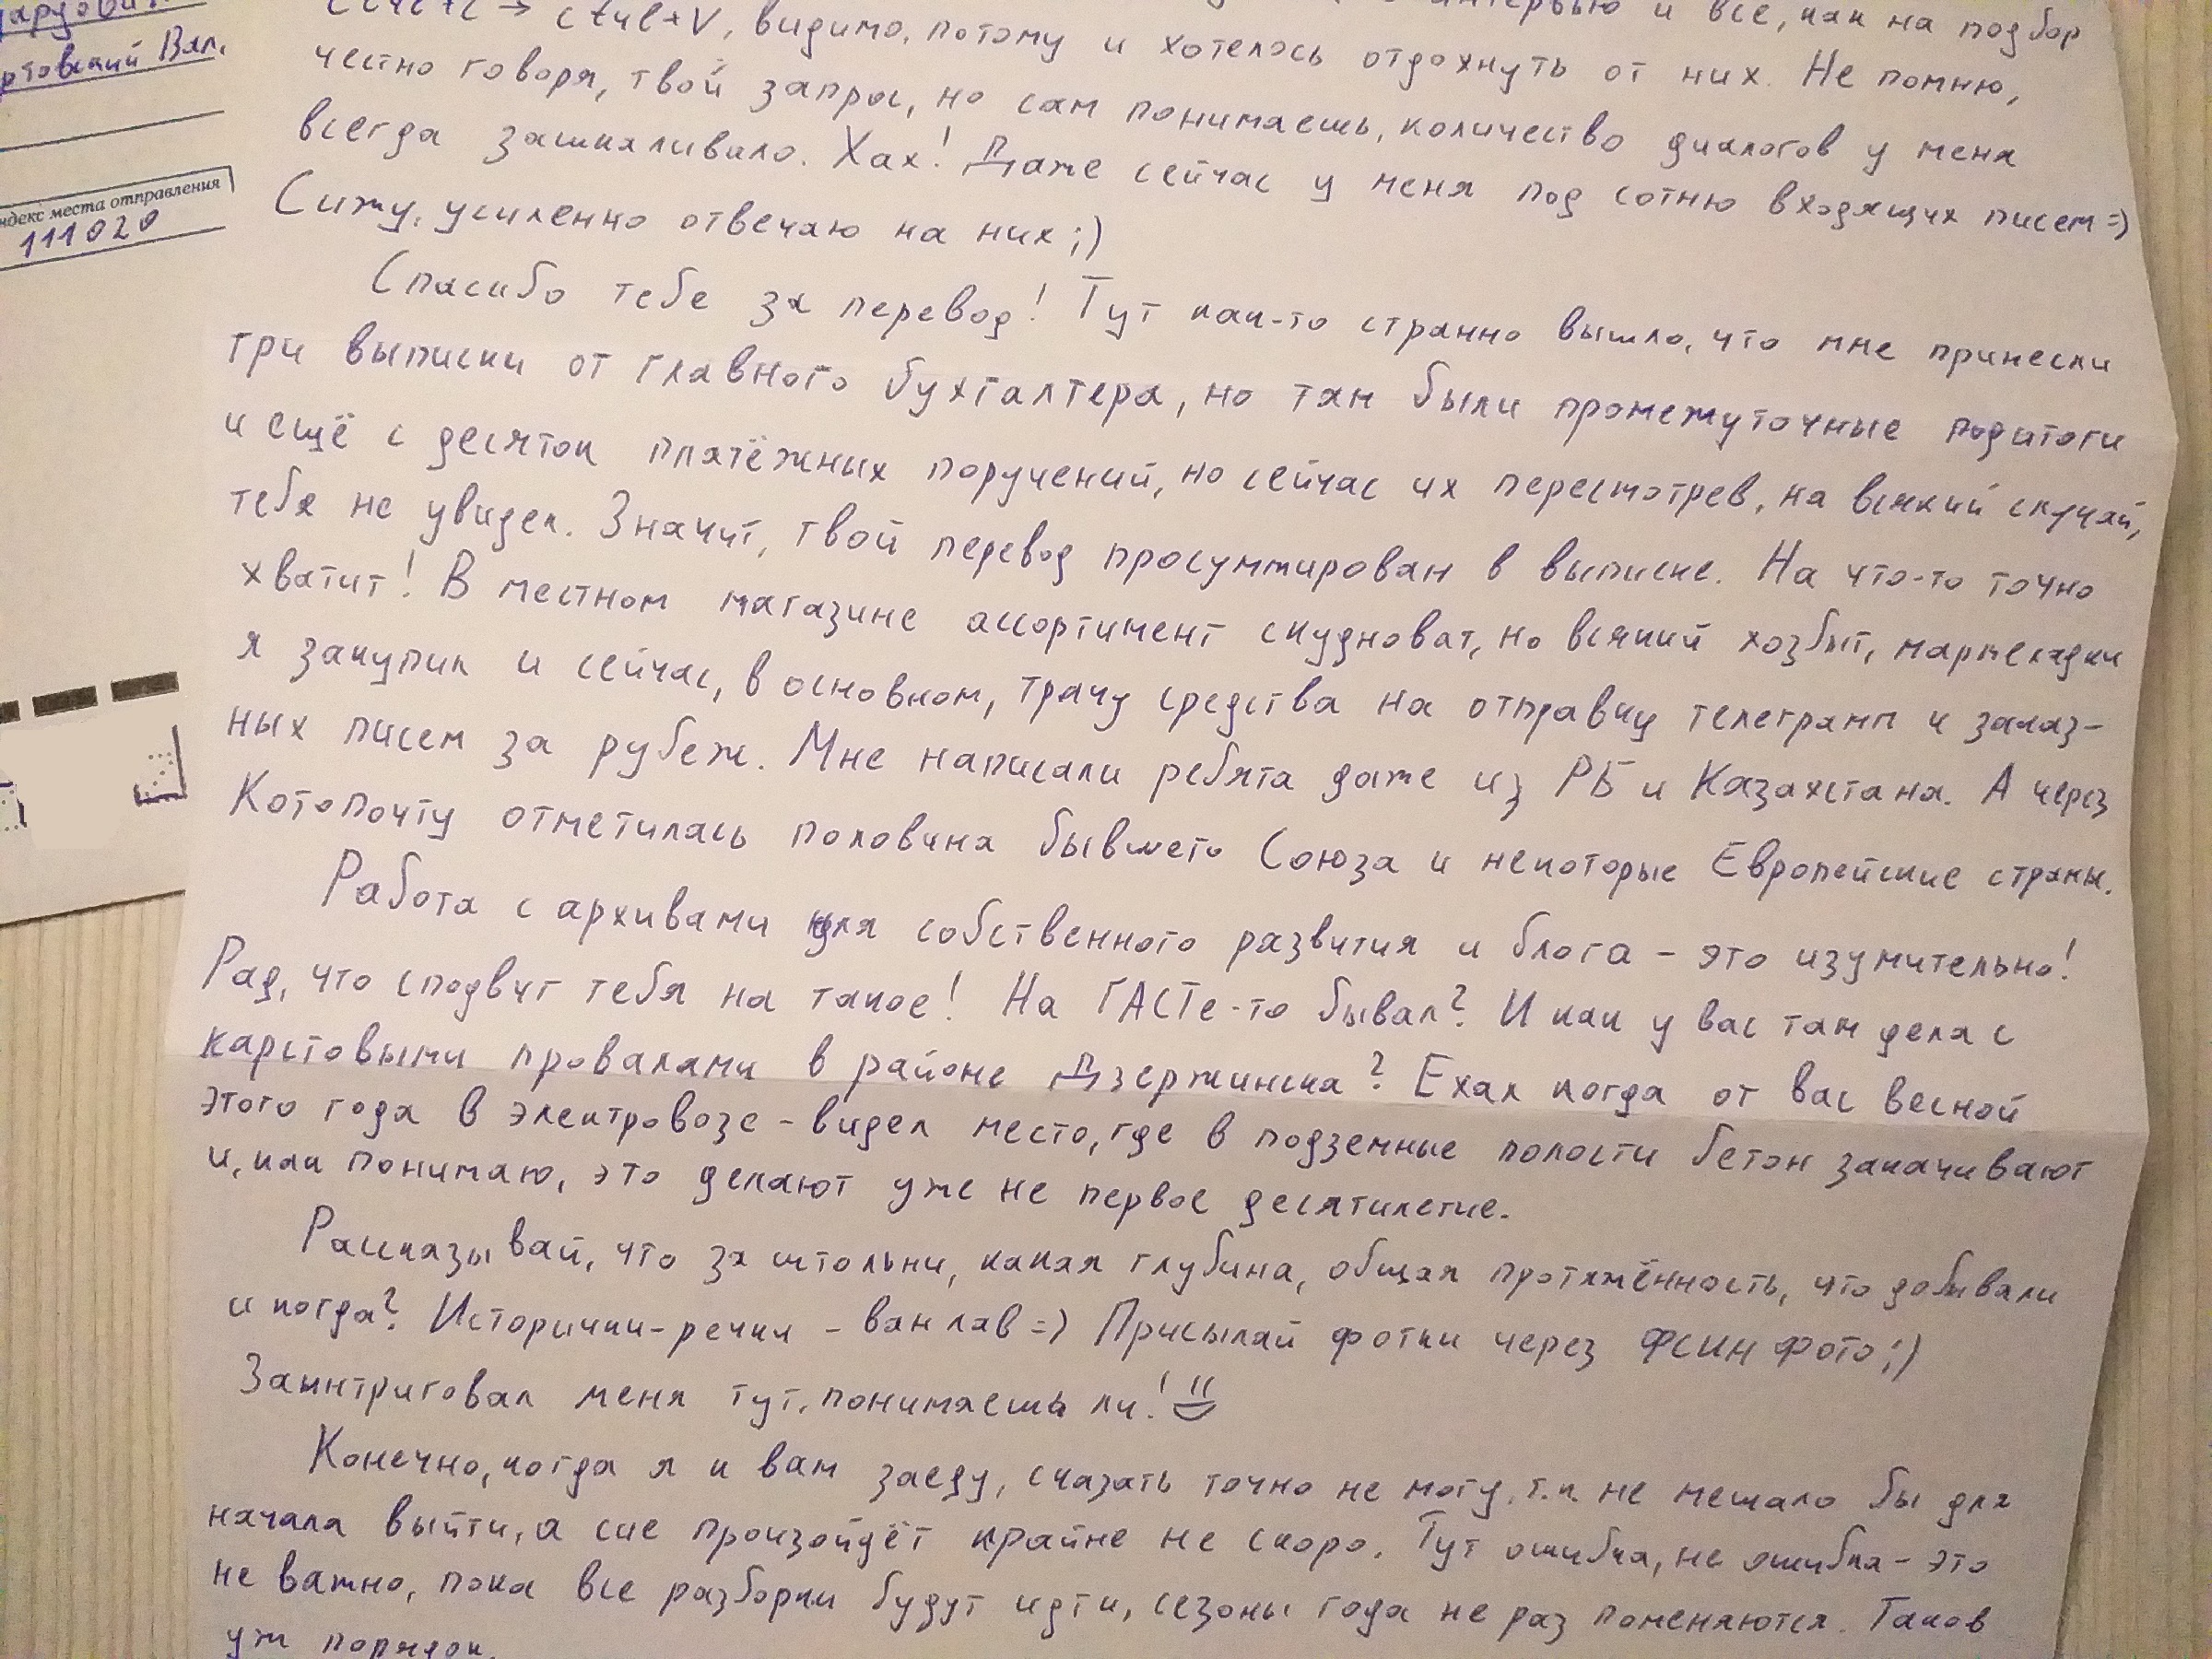 ртовский Вял.
ндекс места отправления
111020
ctrl+c → ctrl+V, видимо, потому и хотелось отдохнуть от них. Не помню,
интервью и все, как на подбор
честно говоря, твой запрос, но сам понимаешь, количество диалогов у меня
всегда зашкаливало. Хах! Даже сейчас у меня под сотню входящих писем =)
Сижу, усиленно отвечаю на них ;)
Спасибо тебе за перевод! Тут как-то странно вышло, что мне принесли
три выписки от главного бухгалтера, но там были промежуточные подитоги
и ещё с десяток платёжных поручений, но сейчас их пересмотрев, на всякий случай,
тебя не увидел. Значит, твой перевод просуммирован в выписке. На что-то точно
хватит! В местном магазине ассортимент скудноват, но всякий хозбыт, мармеладки
я закупил и сейчас, в основном, трачу средства на отправку телеграмм и заказ-
ных писем за рубеж. Мне написали ребята даже из РБ и Казахстана. А через
Котопочту отметилась половина бывшего Союза и некоторые Европейские страны.
Работа с архивами для собственного развития и блога - это изумительно!
Рад, что сподвиг тебя на такое! На ГАСТе-то бывал? И как у вас там дела с
карстовыми провалами в районе Дзержинска? Ехал когда от вас весной
этого года в электровозе - видел место, где в подземные полости бетон закачивают
и, как понимаю, это делают уже не первое десятилетие.
Рассказывай, что за штольни, какая глубина, общая протяжённость, что добывали
и когда? Исторички-речки - ван лав =) Присылай фотки через ФСИН фото ;)
Заинтриговал меня тут, понимаешь ли!
Конечно, когда я к вам заеду, сказать точно не могу, т.к. не мешало бы для
начала выйти, а сие произойдёт крайне не скоро. Тут ошибка, не ошибка - это
не важно, пока все разборки будут идти, сезоны года не раз поменяются. Таков
уж порядок.